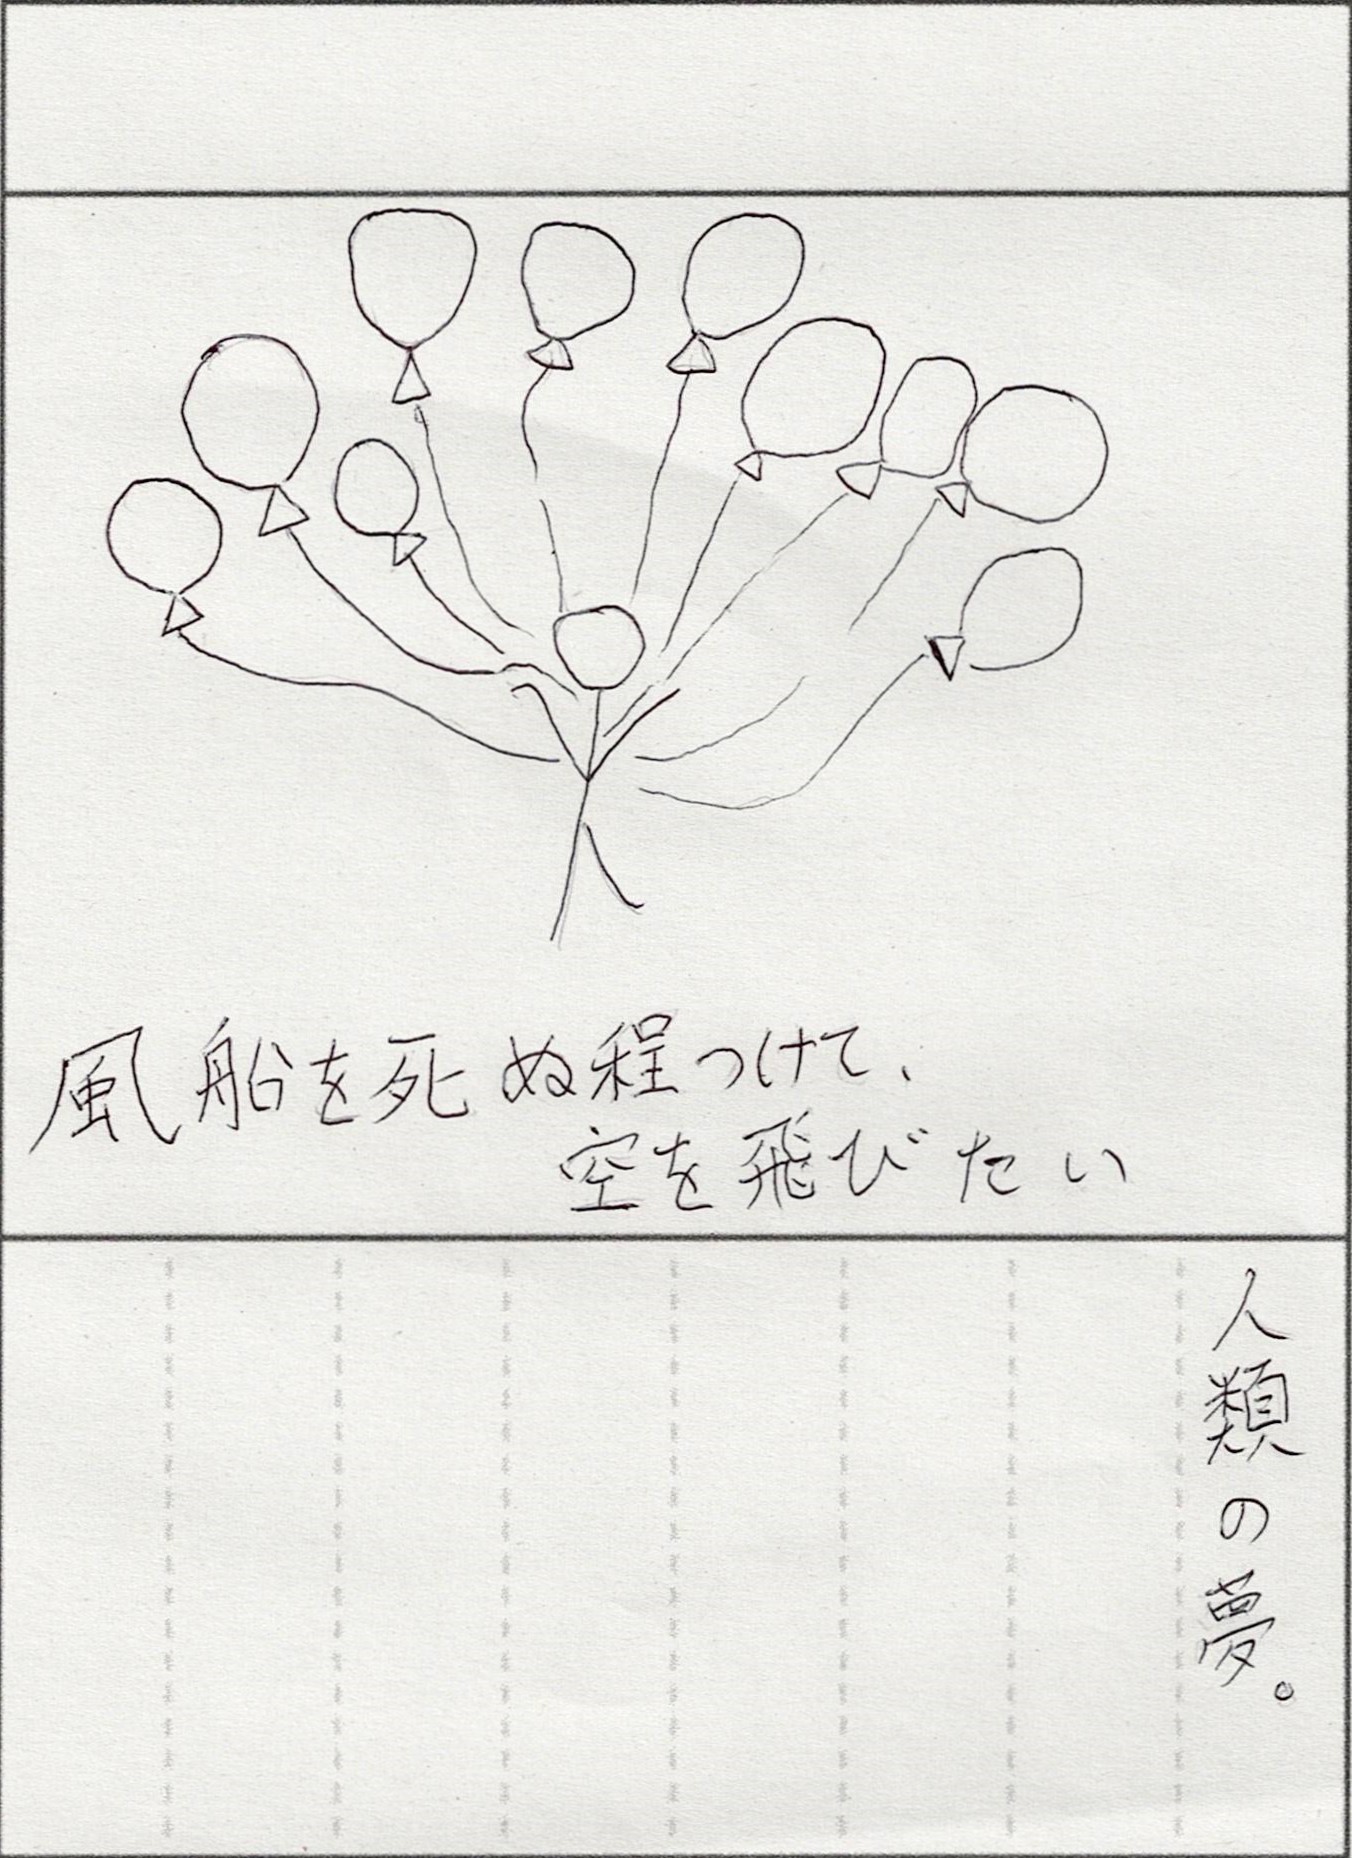 風船を死ぬ程つけて、
空を飛びたい
人類の夢。